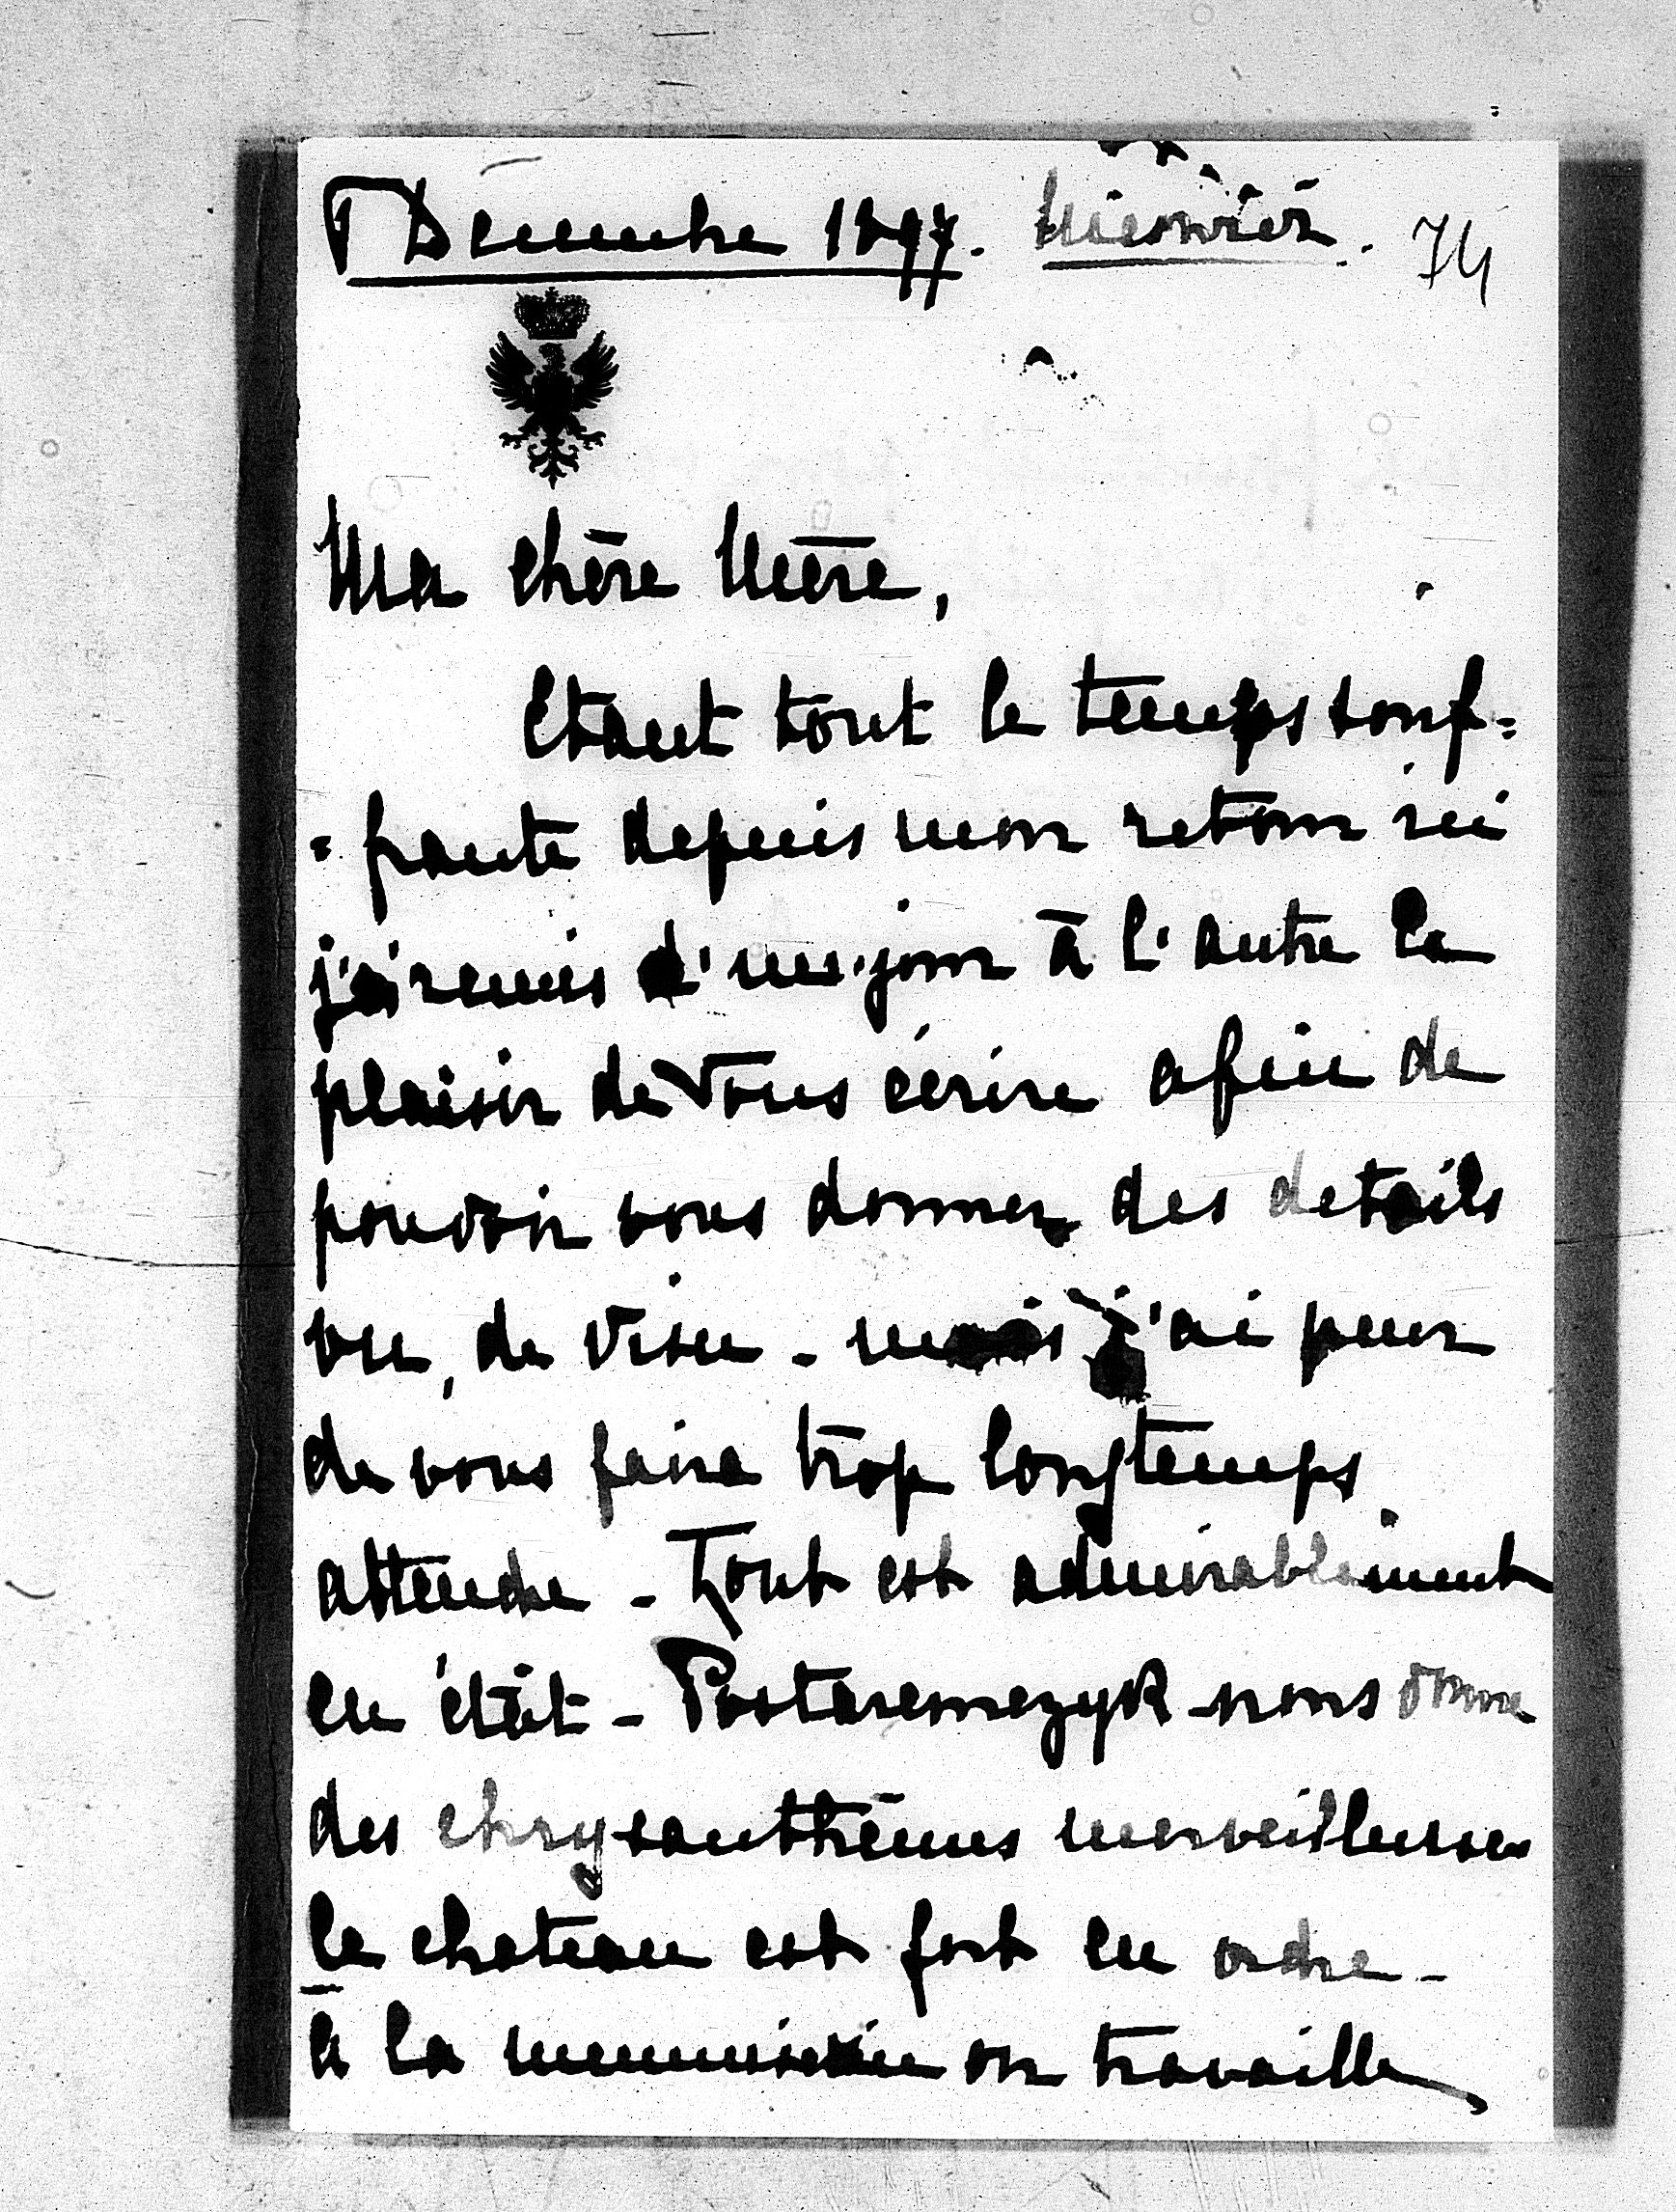 1 Decembre 1897. Nieswiez. 74
Ma chère Mère,
Etant tout le temps souf=
=frante depuis mon retour ici
j'ai remis d'un jour à l'autre le
plaisir de vous écrire afin de
pouvoir vous donner des details
vu, de visu - mais j'ai peur
de vous faire trop longtemps
attendre - Tout est admirablement
en état - nous donne
des chrysanthèmes merveilleuses
le chateau est fort en ordre -
à la menuiserie on travaille